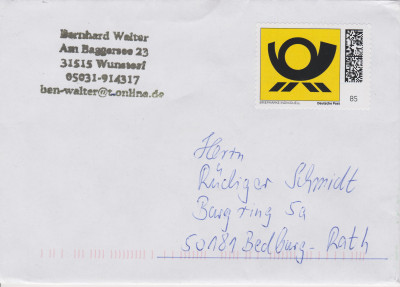 Bernhard Walter
Am Baggersee 23
31515 Wunstorf
05031-914317
ben-walter@t.online.de
Deutsche Post
85
Herrn
Rüdiger Schmidt
Burgring 5a
50181 Bedburg-Rath